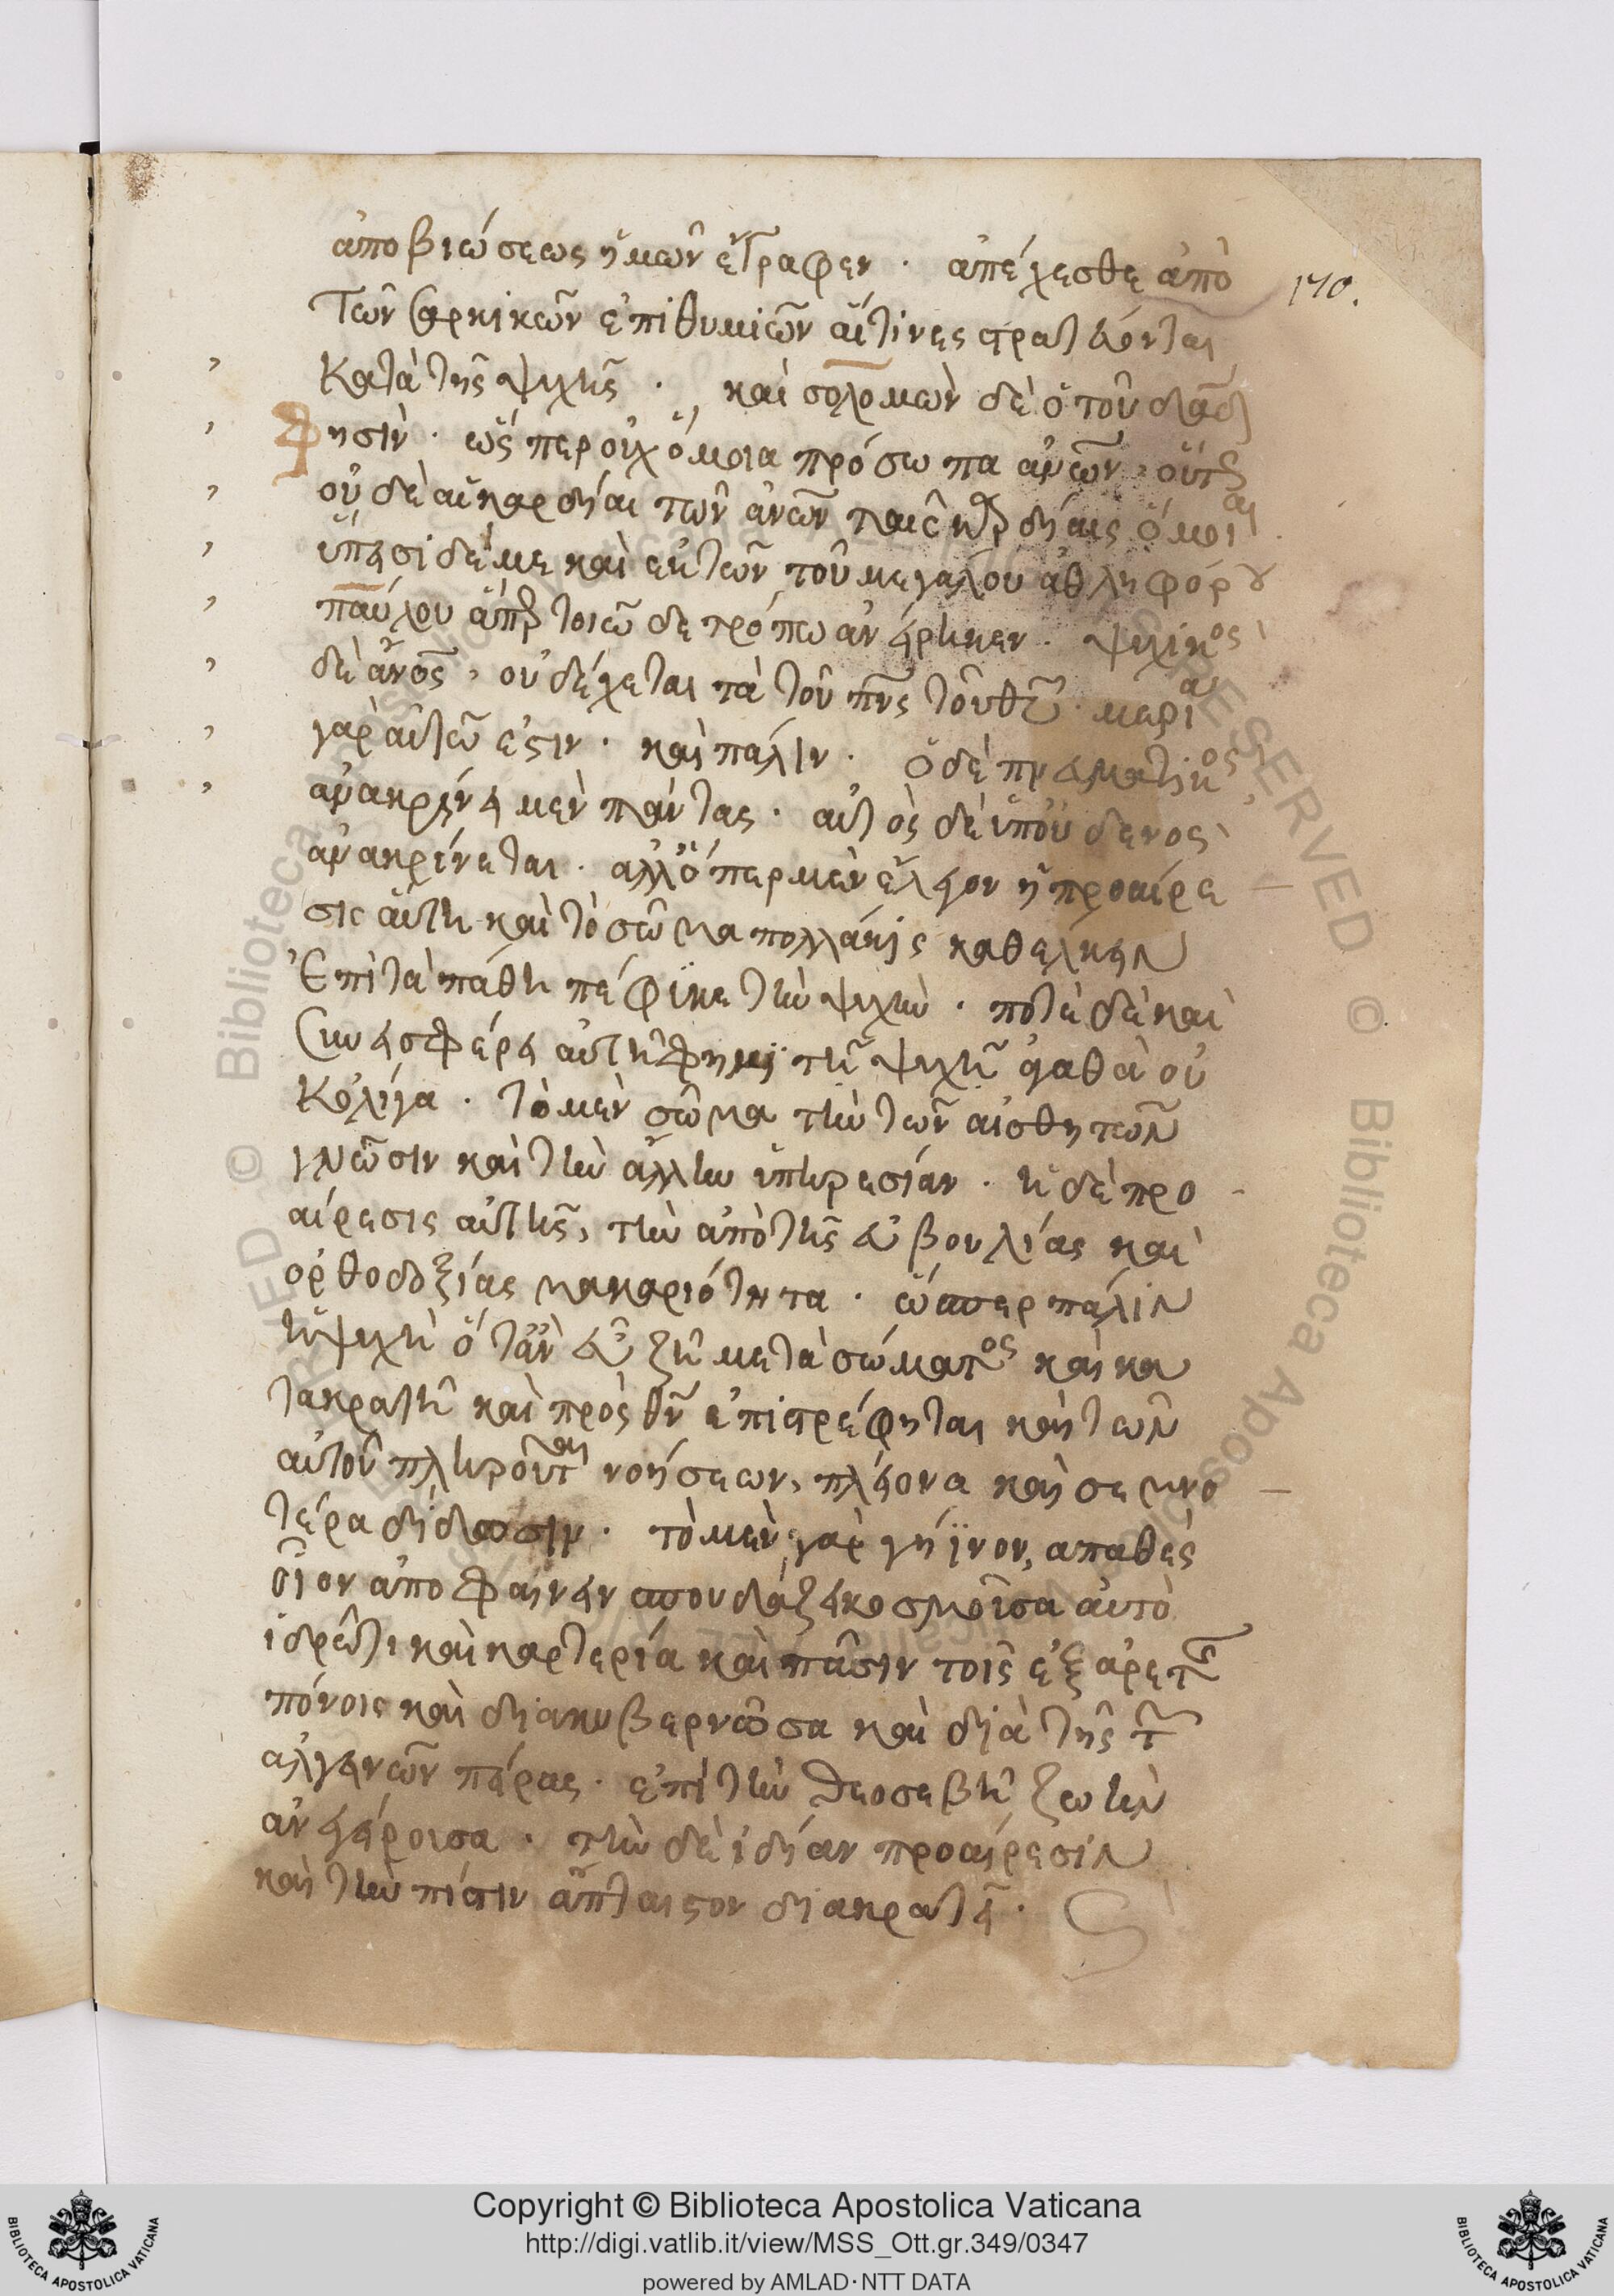 ἀποβιώσεως ἡμῶν ἔγραφεν · ἀπέχεσθε ἀπὸ
170.
τῶν σαρκικῶν ἐπιθυμιῶν αἵτινες στρατεύονται
κατὰ τῆς ψυχῆς · καὶ σολομὼν δὲ ὁ τοῦ δαδ
φησὶν · ὥσπερ οὐχ ὅμοια πρόσωπα ἀνων, οὕτως
οὐδὲ αἱ καρδίαι τῶν ἀνων ταῖς καρδίαις ὅμοιαι
δέ με καὶ ἐκ τῶν τοῦ μεγάλου ἀθληφόρου
παύλου τοιῶδε τρόπω ἀνείρηκεν · ψυχικὸς
δὲ ἄνος, οὐ δέχεται τὰ τοῦ πνς τοῦ θυ · μωρία
γὰρ αὐτῶ ἐστιν · καὶ πάλιν · ὁ δὲ πνευματικὸς
ἀνακρίνει μὲν πάντας · αὐτὸς δὲ ὑπ' οὐδενὸς
ἀνακρίνεται · ἀλλ' ὅπερ μὲν ἕλειον ἡ προαίρε
σις αὕτη καὶ τὸ σῶμα πολλάκις καθέλκειν
ἐπὶ τὰ πάθη πέφυκε τὴν ψυχὴν · ποτὲ δὲ καὶ
συνεισφέρει αὐτῆ φημὶ τῆ ψυχῆ ἀγαθὰ οὐ
κ ὀλίγα · τὸ μὲν σῶμα τὴν τῶν αἰσθητῶν
γνῶσιν καὶ τὴν ἄλλην ὑπηρεσίαν · ἡ δὲ προ
αίρεσις αὐτῆς, τὴν ἀπὸ τῆς εὐβουλίας καὶ
ὀρθοδοξίας μακαριότητα · ὥσπερ πάλιν
ἡ ψυχὴ ὅταν εὖ ζῆ μετὰ σώματος καὶ κα
τακρατῆ καὶ πρὸς θν ἐπιστρέφηται καὶ τῶν
αὐτοῦ πληροῦται νοήσεων, πλείονα καὶ σεμνο
τέρα δίδωσιν · τὸ μὲν γὰρ γήϊνον, ἀπαθὲς
οἷον ἀποφαίνειν σπουδάζει κοσμοῦσα αὐτὸ
ἱδρῶτι καὶ καρτερία καὶ πᾶσιν τοῖς ἐξ ἀρετῆς
πόνοις καὶ διακυβερνῶσα καὶ διὰ τῆς τῶν
ἀλγεινῶν πείρας · ἐπὶ τὴν θεοσεβῆ ζωὴν
ἀνεγείρουσα · τὴν δὲ ἰδίαν προαίρεσιν
καὶ τὴν πίστιν ἄπταιστον διακρατεῖ ·
Copyright © Biblioteca Apostolica Vaticana
http://digi.vatlib.it/view/MSS_Ott.gr.349/0347
powered by AMLAD·NTT DATA